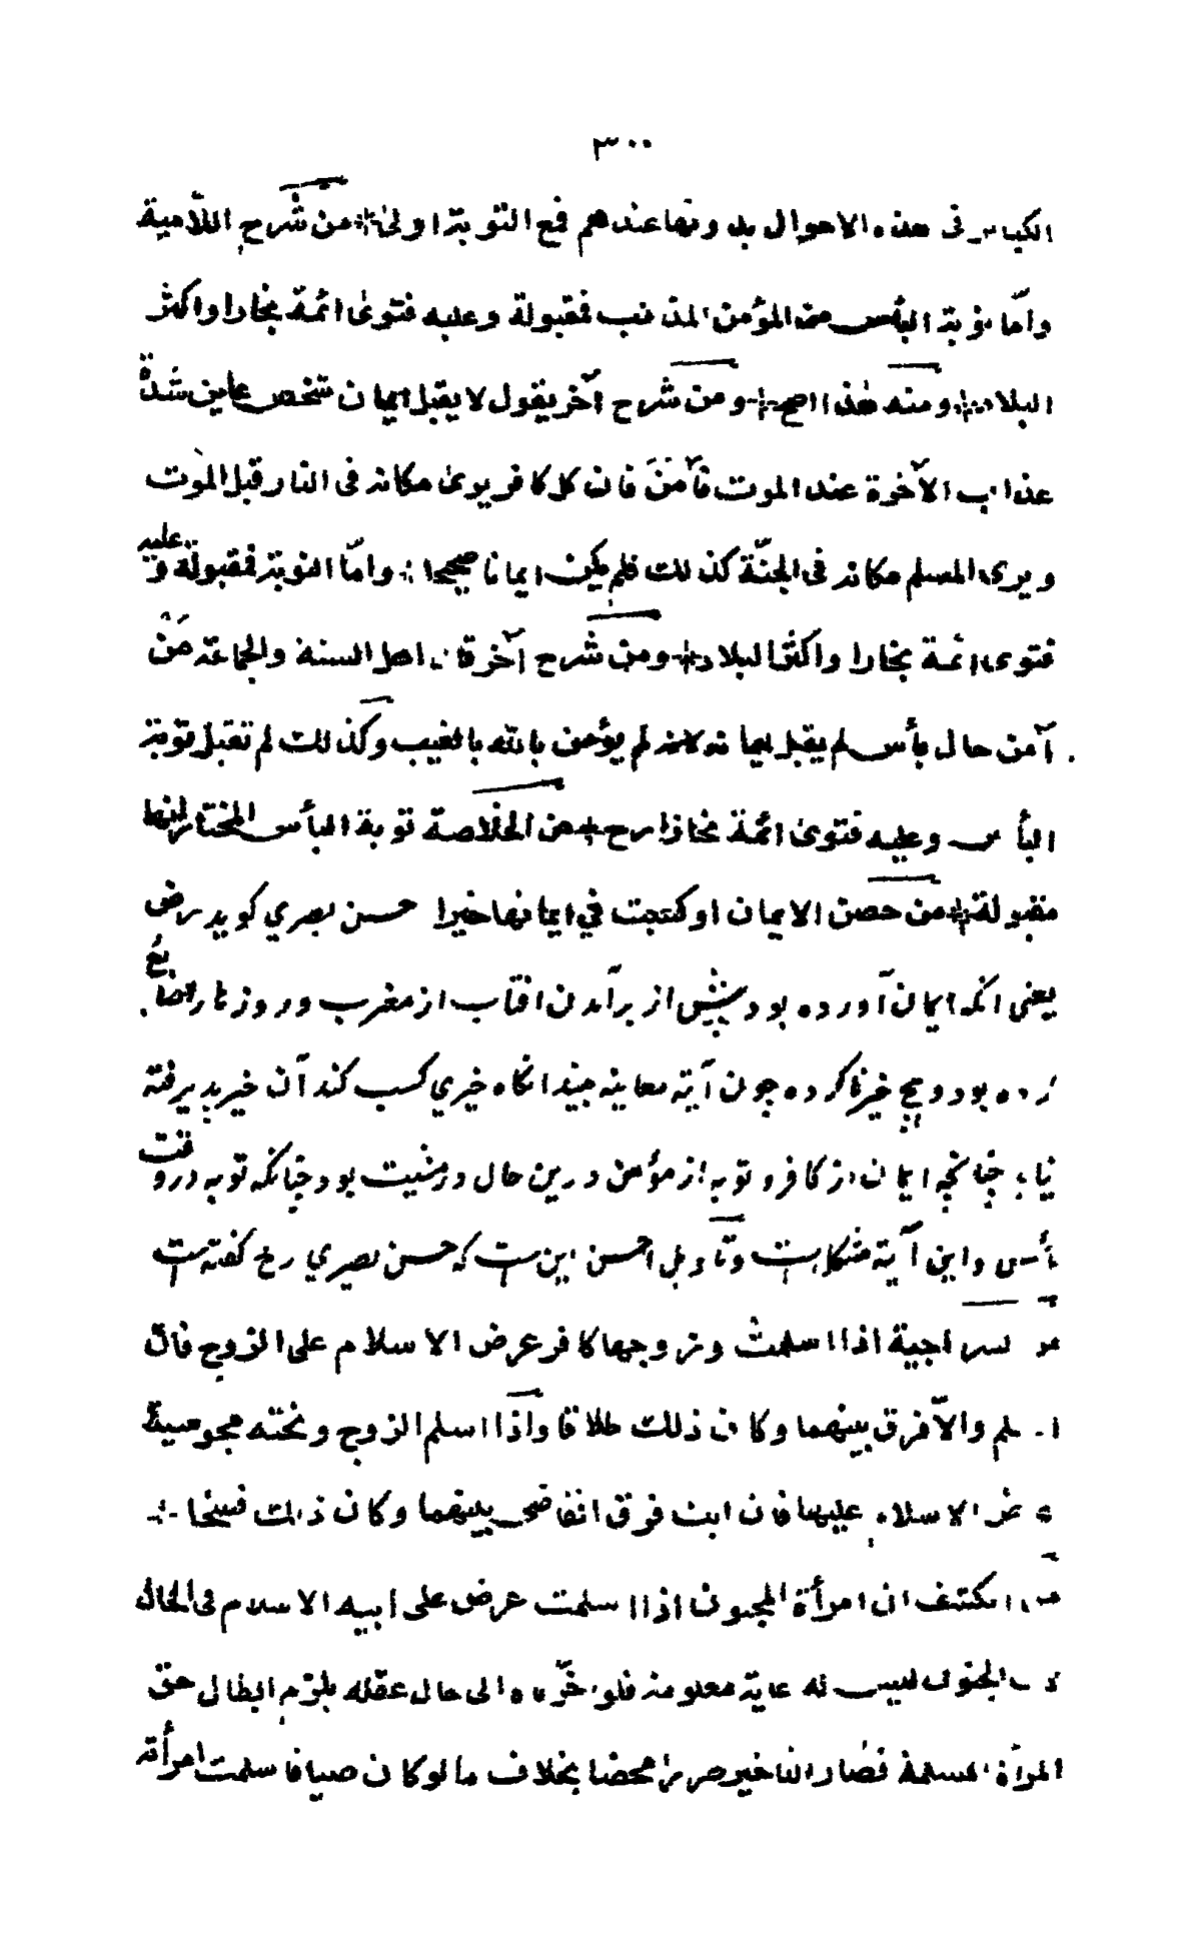 ٣٠٠
الكبائر فى هذه الاحوال بدونها عندهم فمع التوبة اولى * من شرح اللّامية
وامّا توبة البأس من المؤمن المذنب فمقبولة وعليه فتوىٰ ائمة بخارا واكثر
البلاد * ومنه هٰذا اصح * ومن شرح آخر يقول لا يقبل ايمان شخص عاين شدّة
عذاب الآخرة عند الموت فآمَنَ فان كل كافر يرىٰ مكانه فى النار قبل الموت
ويرى المسلم مكانه فى الجنّة كذلك فلم يكن ايمانا صحيحا * وامّا التوبة فمقبولة وعليه
فتوى ائمة بخارا واكثر البلاد * ومن شرح آخر قال اهل السنة والجماعة مَنْ
آمن حال بأس لم يقبل ايمانه لانه لم يؤمن بالله بالغيب وكذلك لم تقبل توبة
البأس وعليه فتوىٰ ائمة بخارا رح * من الخلاصة توبة البأس المختار انها
مقبولة * من حصن الايمان او كسبت في ايمانها خيرا حسن بصري كويد رض
يعنى انكه ايمان آورده بود پيش از برآمدن افتاب از مغرب وروزكار ضايع
كرده بود وهيچ خير ناكرده چون آية معاينه بيند انكاه خيري كسب كند آن خير پديرفته
نيايد چنانچه ايمان از كافر وتوبه از مؤمن درين حال در مشيت بود چنانكه توبه در وقت
بأس واين آية مشكلست وتأويل احسن اينست كه حسن بصيري رح كفته ست
من سراجية اذا اسلمت وزوجها كافر عرض الاسلام على الزوج فان
اسلم والّا فرق بينهما وكان ذلك طلاقا واذا اسلم الزوج وتحته مجوسية
عرض الاسلام عليها فان ابت فرق القاضى بينهما وكان ذلك فسخا *
من الكشف ان امرأة المجنون اذا اسلمت عرض على ابيه الاسلام فى الحال
لان الجنون ليس له غاية معلومة فلو اخّرناه الى حال عقله يلزم ابطال حق
المرأة المسلمة فصار التأخير ضررا محضا بخلاف ما لو كان صبيا فاسلمت امرأته